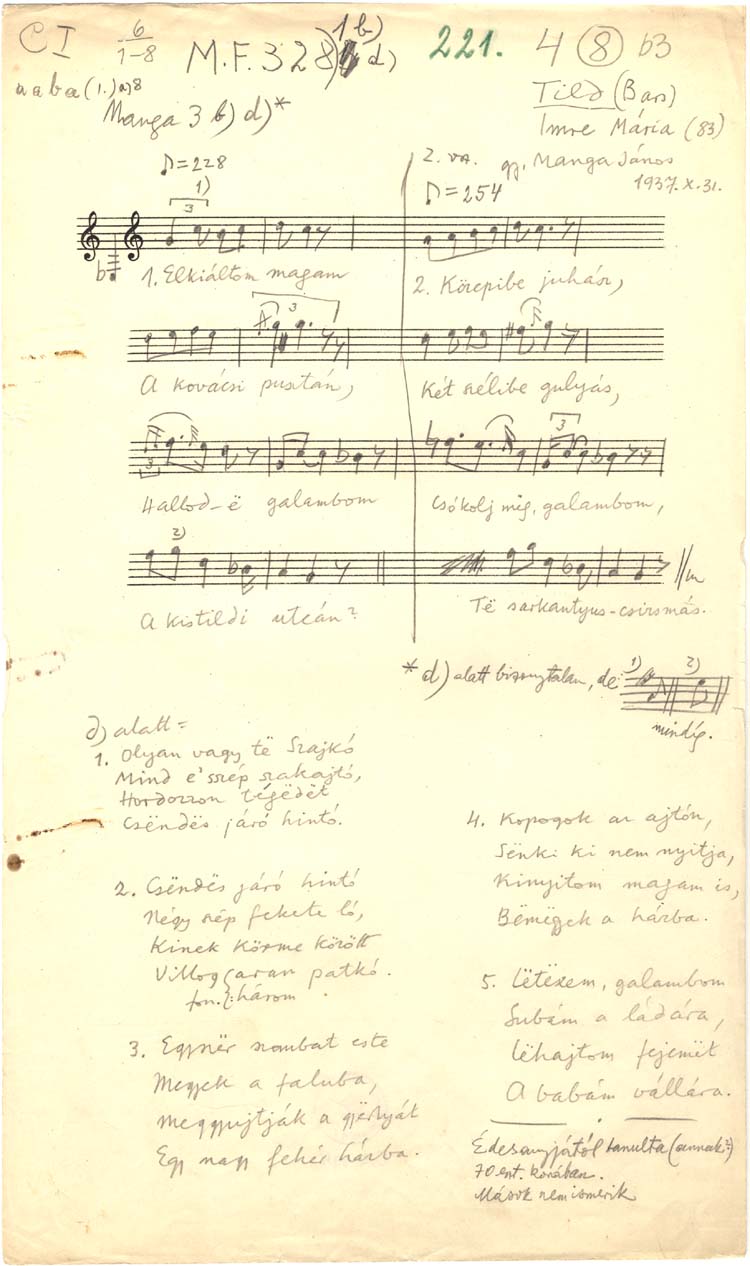 C I 6/1-8 M.F. 328) 1 b) d) 221. 4 (8) b3
a a b a (1.) a) 8
Manga 3 b) d)*
Tild (Bars)
Imre Mária (83)
gy. Manga János
1937. X. 31.
♪=228
2. va.
♪=254
1)
3
b
1. Elkiáltom magam
2. Közepibe juhász,
3
A kovácsi pusztán,
Két szélibe gulyás,
3
3
Hallod-ë galambom
Csókolj mig, galambom,
2)
A kistildi utcán?
Të sarkantyus-csizsmás.
* d) alatt bizonytalan, de: 1) 2)
mindíg.
d) alatt =
1. Olyan vagy të Szajkó
Mind e' szép szakajtó,
Hordozzon tégëdët
Csëndës járó hintó.
2. Csëndës járó hintó
Négy szép fekete ló,
Kinek körme között
Villog aran patkó.
fon. három
3. Egyszër szombat este
Megyek a faluba,
meggyujtják a gyërtyát
Egy nagy fehér házba.
4. Kopogok az ajtón,
Sënki ki nem nyitja,
Kinyitom magam is,
Bëmëgyek a házba.
5. Lëtëszem, galambom
Subám a ládára,
Lëhajtom fejemët
A babám vállára.
Édesanyjától tanulta (annak?)
70 eszt. korában.
Mások nem ismerik